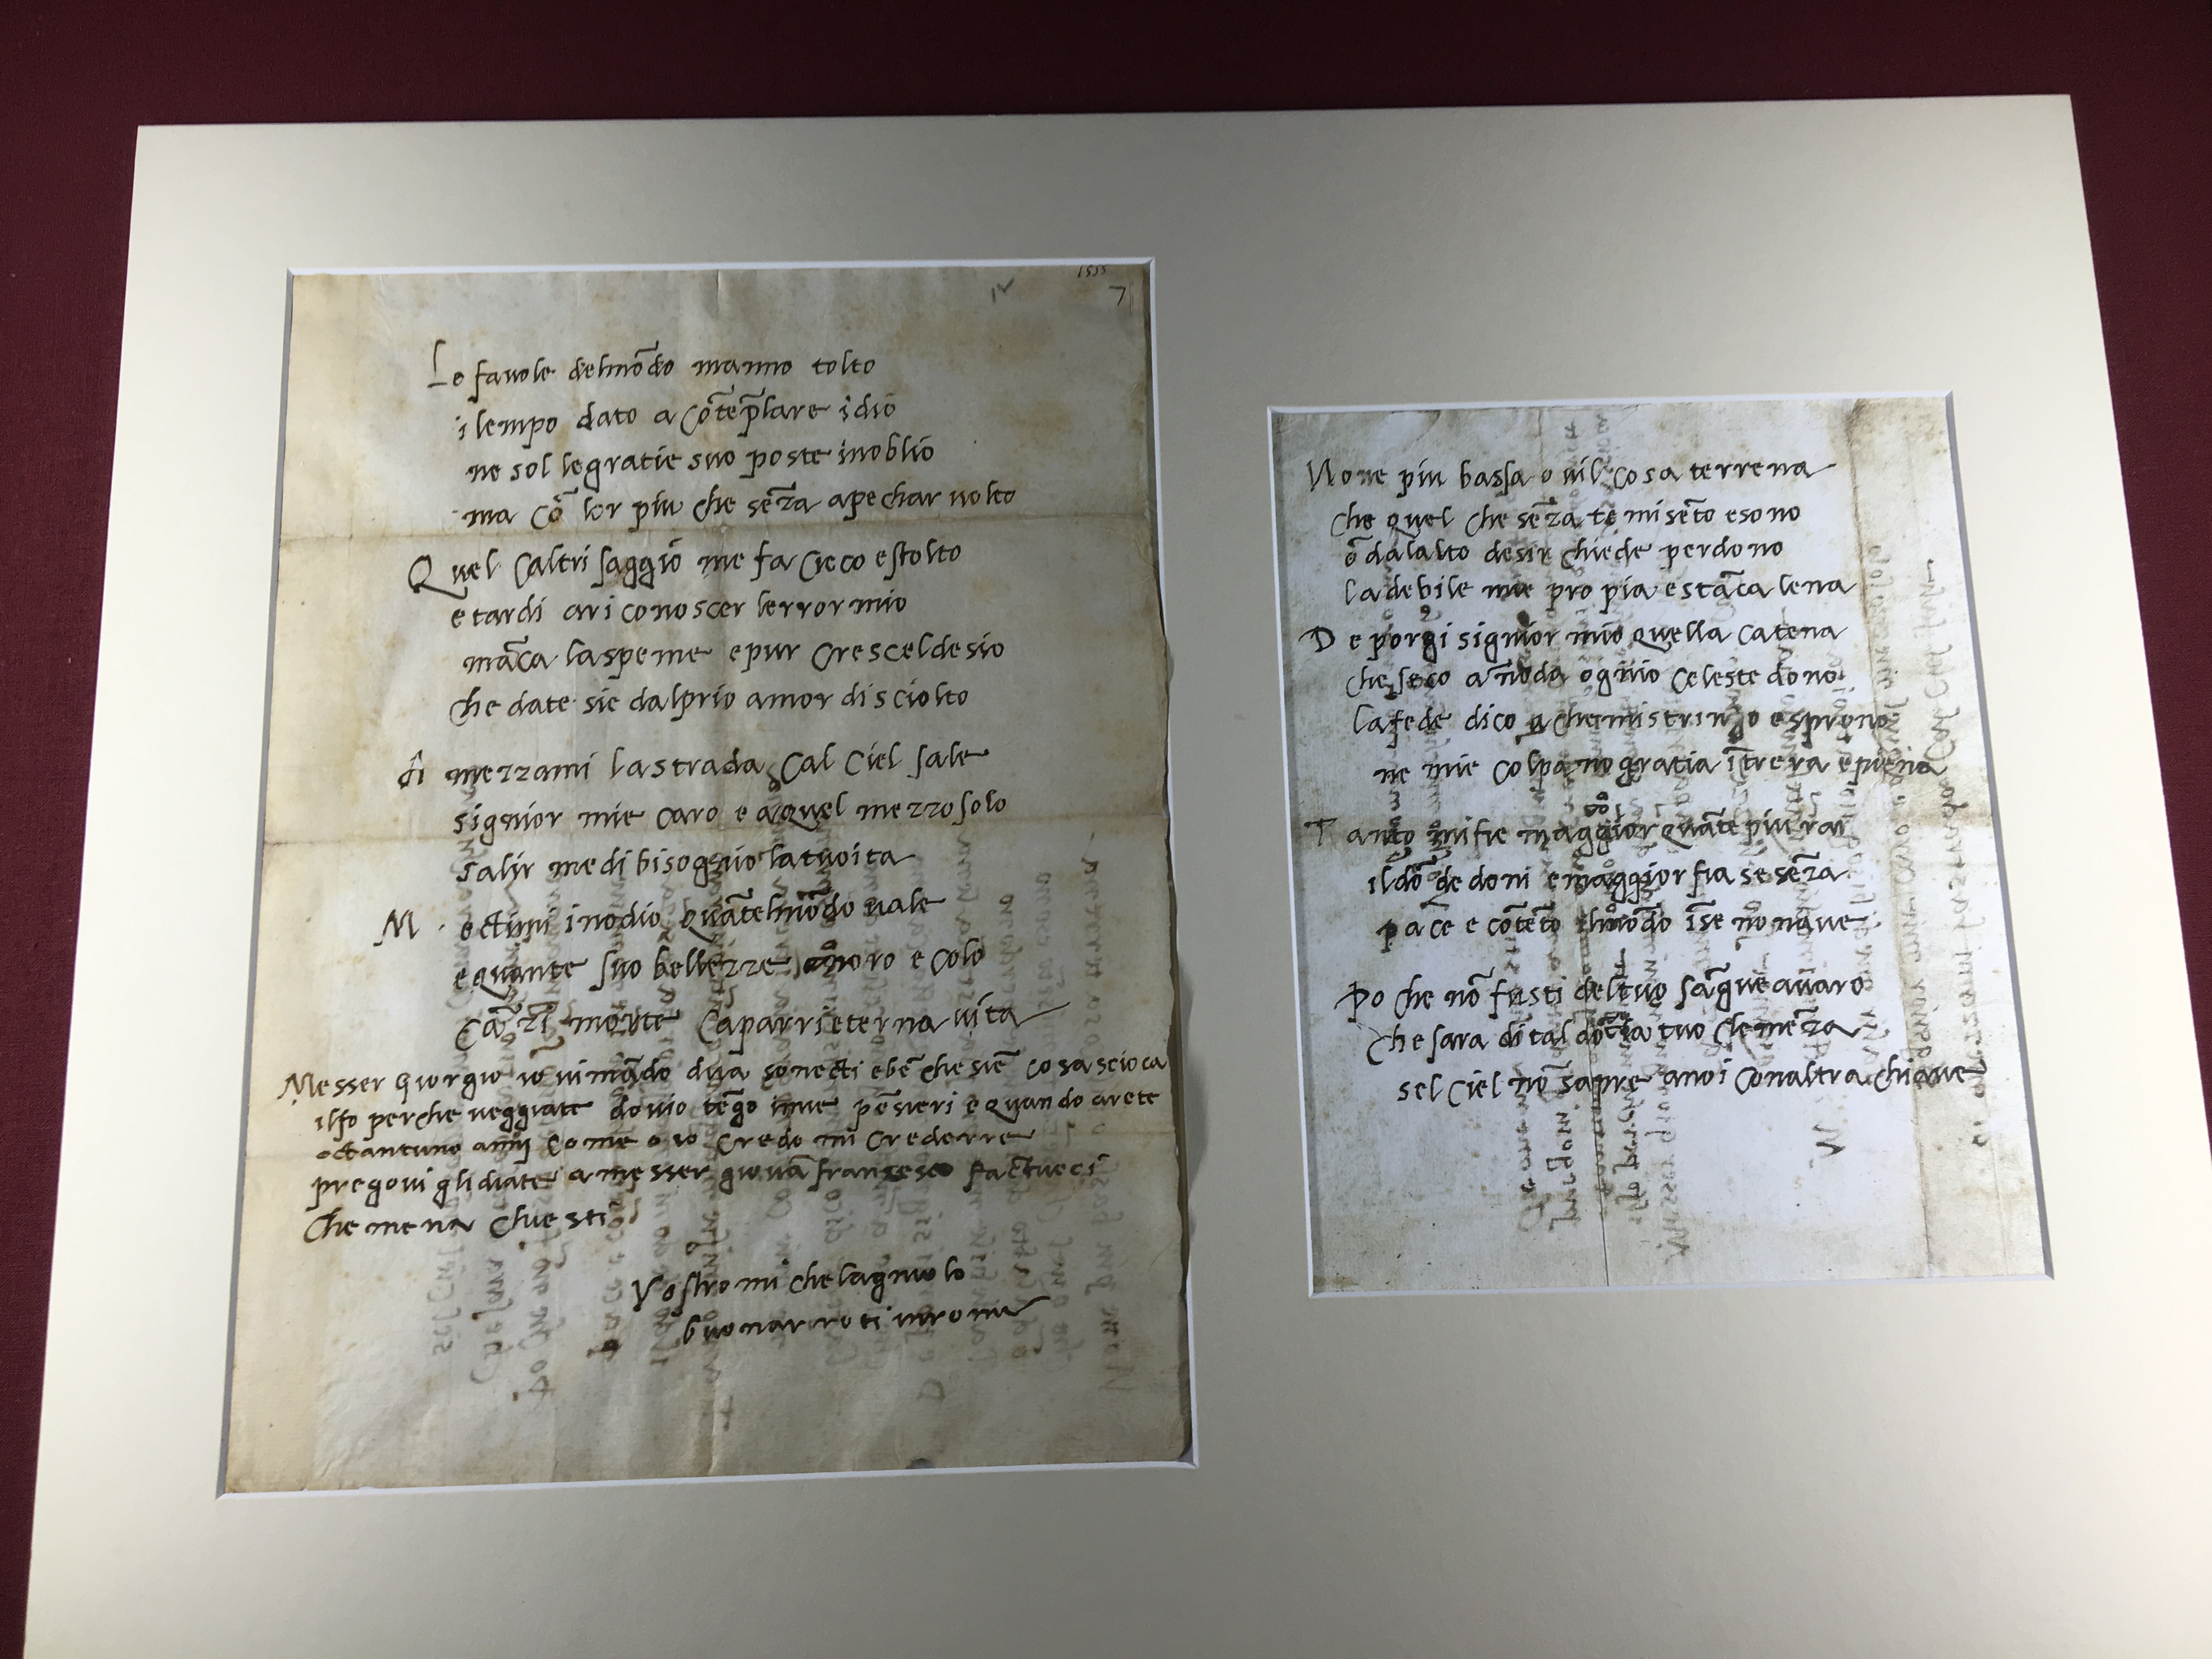 1555
7
Le favole delmōdo manno tolto
i lempo dato a cōtēplare idio
ne sol legratie suo poste inoblio
ma cō lor piu che sēza apechar volto
Quel caltri saggio me fa cieco estolto
e tardi ari conoscer lerror mio
māca laspeme epur cresceldesio
che date sie dalprio amor disciolto
A mezzami lastrada cal ciel sale
signior mie caro e aquel mezzo solo
salir medi bisognio latuoita
Mectimi inodio quātelmōdo vale
equante suo bellezze onoro e colo
cāzi morte caparri eterna vita
Messer giorgio io vimādo dua sonecti ebē che siē cosa scioca
ilfo perche veggiate dovio tēgo imie pēsieri e quando arete
octantuno anni come o io credo mi crederrete
pregovi gli diate a messer giovā francesco factucci
che me na chiesti
Vostro michelagniolo
buonarroti in roma
None piu bassa o vil cosa terrena
che quel che sēza te misēto esono
ō dalalto desir chiede perdono
ladebile mie propia estāca lena
De porgi signior mio quella catena
che seco annoda ognio celeste dono
lafede dico a chemistringo esprono
ne mie colpa nogratia ītrera epiena
Tanto mi fie maggior quāte piu raro
il dō de doni emaggior fia se sēza
pace e cōtēto elmōdo īse nō nave
Po che nō fusti deltuo sāgue avaro
che sara dital dō la tuo clemēza
sel ciel nō sapre anoi conaltra chiave